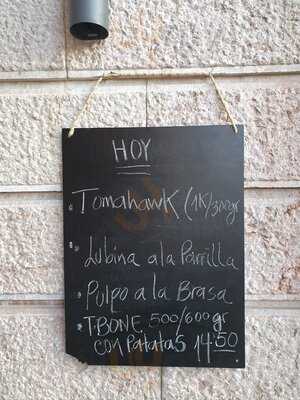 HOY
Tomahawk (1K/300gr
Lubina a la Parrilla
Pulpo a la Brasa
T-BONE 500/600gr
con Patatas 14.50